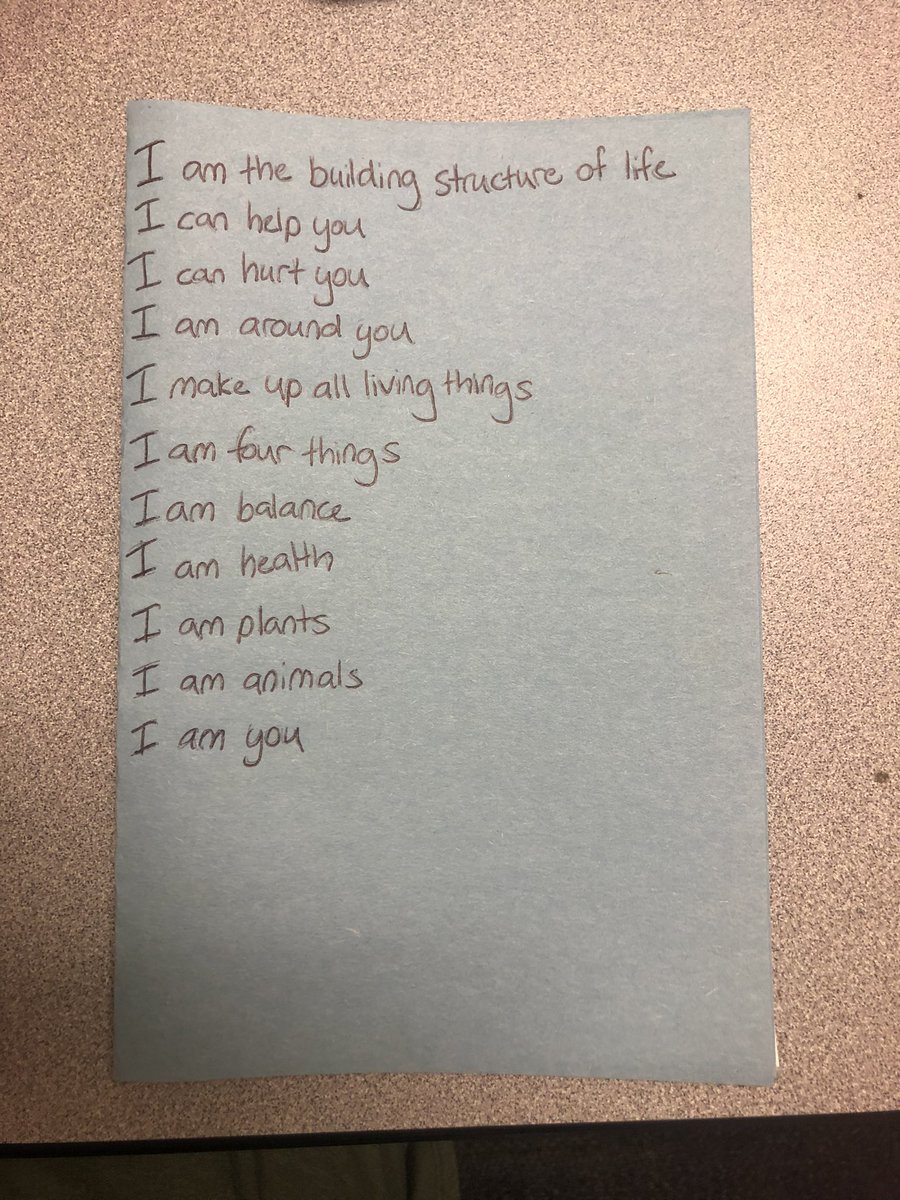 I am the building structure of life
I can help you
I can hurt you
I am around you
I make up all living things
I am four things
I am balance
I am health
I am plants
I am animals
I am you